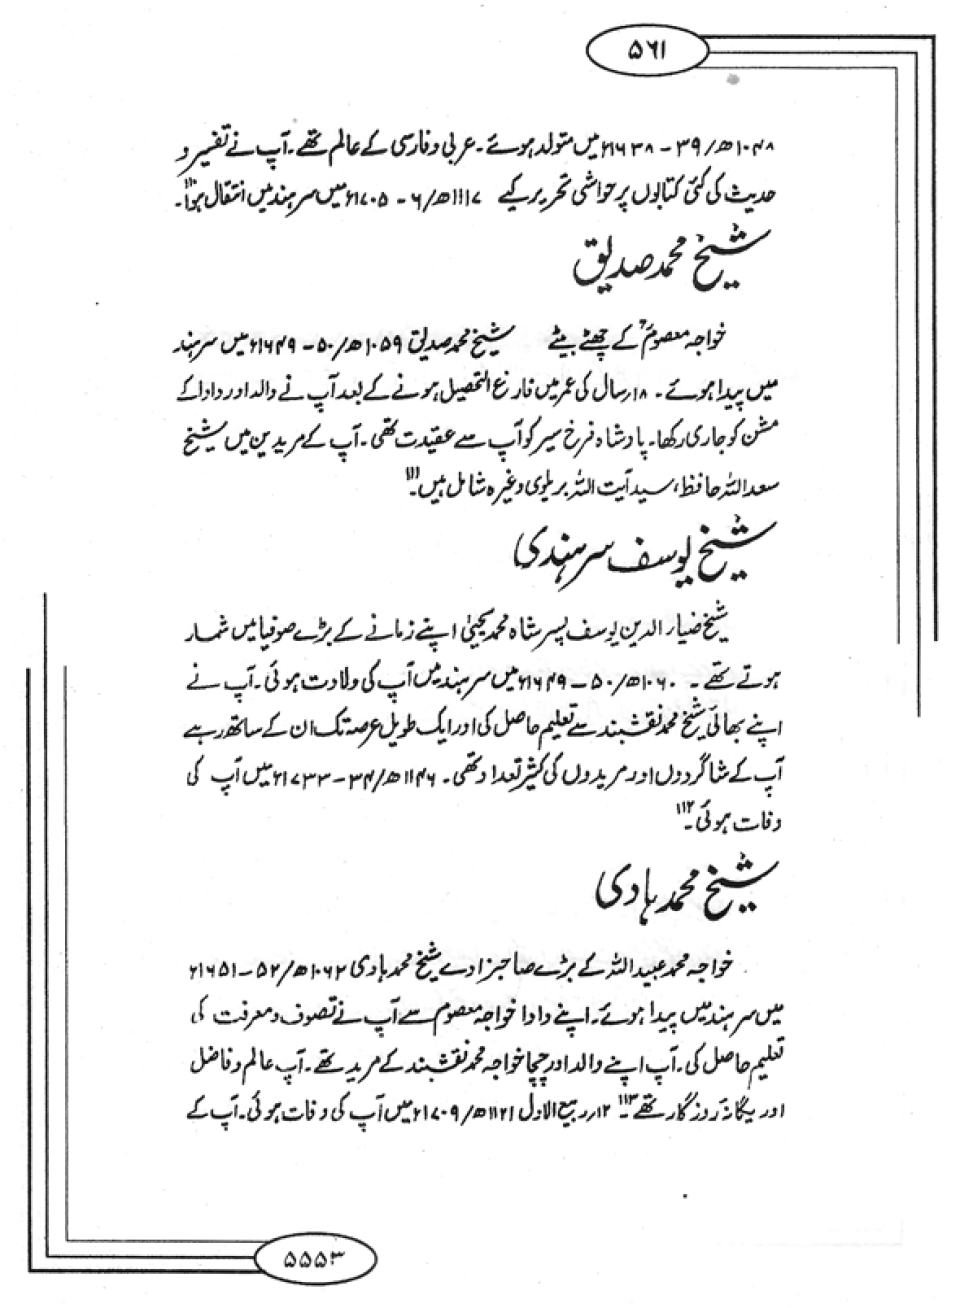 ۵۶۱
۱۰۴۸ھ/۳۹-۱۶۳۸ء میں متولد ہوئے۔ عربی و فارسی کے عالم تھے۔ آپ نے تفسیر و
حدیث کی کئی کتابوں پر حواشی تحریر کیے ۱۱۱۷ھ/۶-۱۷۰۵ء میں سرہند میں انتقال ہوا۔۱۱۰
شیخ محمد صدیق
خواجہ معصومؒ کے چھٹے بیٹے شیخ محمد صدیق ۱۰۵۹ھ/۵۰-۱۶۴۹ء میں سرہند
میں پیدا ہوئے۔ ۱۸؍سال کی عمر میں فارغ التحصیل ہونے کے بعد آپ نے والد اور دادا کے
مشن کو جاری رکھا۔ پادشاہ فرخ سیر کو آپ سے عقیدت تھی۔ آپ کے مریدین میں شیخ
سعد اللہ حافظ، سید آیت اللہ بریلوی وغیرہ شامل ہیں۔۱۱۱
شیخ یوسف سرہندی
شیخ ضیار الدین یوسف پسر شاہ محمد یحییٰ اپنے زمانے کے بڑے صوفیا میں شمار
ہوتے تھے۔ ۱۰۶۰ھ/۵۰-۱۶۴۹ء میں سرہند میں آپ کی ولادت ہوئی۔ آپ نے
اپنے بھائی شیخ محمد نقشبند سے تعلیم حاصل کی اور ایک طویل عرصہ تک ان کے ساتھ رہے
آپ کے شاگردوں اور مریدوں کی کثیر تعداد تھی۔ ۱۱۴۶ھ/۳۴-۱۷۳۳ء میں آپ کی
وفات ہوئی۔۱۱۲
شیخ محمد ہادی
خواجہ محمد عبید اللہ کے بڑے صاحبزادے شیخ محمد ہادی ۱۰۶۲ھ/۵۲-۱۶۵۱ء
میں سرہند میں پیدا ہوئے۔ اپنے دادا خواجہ معصوم سے آپ نے تصوف و معرفت کی
تعلیم حاصل کی۔ آپ اپنے والد اور چچا خواجہ محمد نقشبند کے مرید تھے۔ آپ عالم و فاضل
اور یگانۂ روزگار تھے۔۱۱۳ ۱۲؍ربیع الاول ۱۱۲۱ھ/۱۷۰۹ء میں آپ کی وفات ہوئی۔ آپ کے
۵۵۵۳